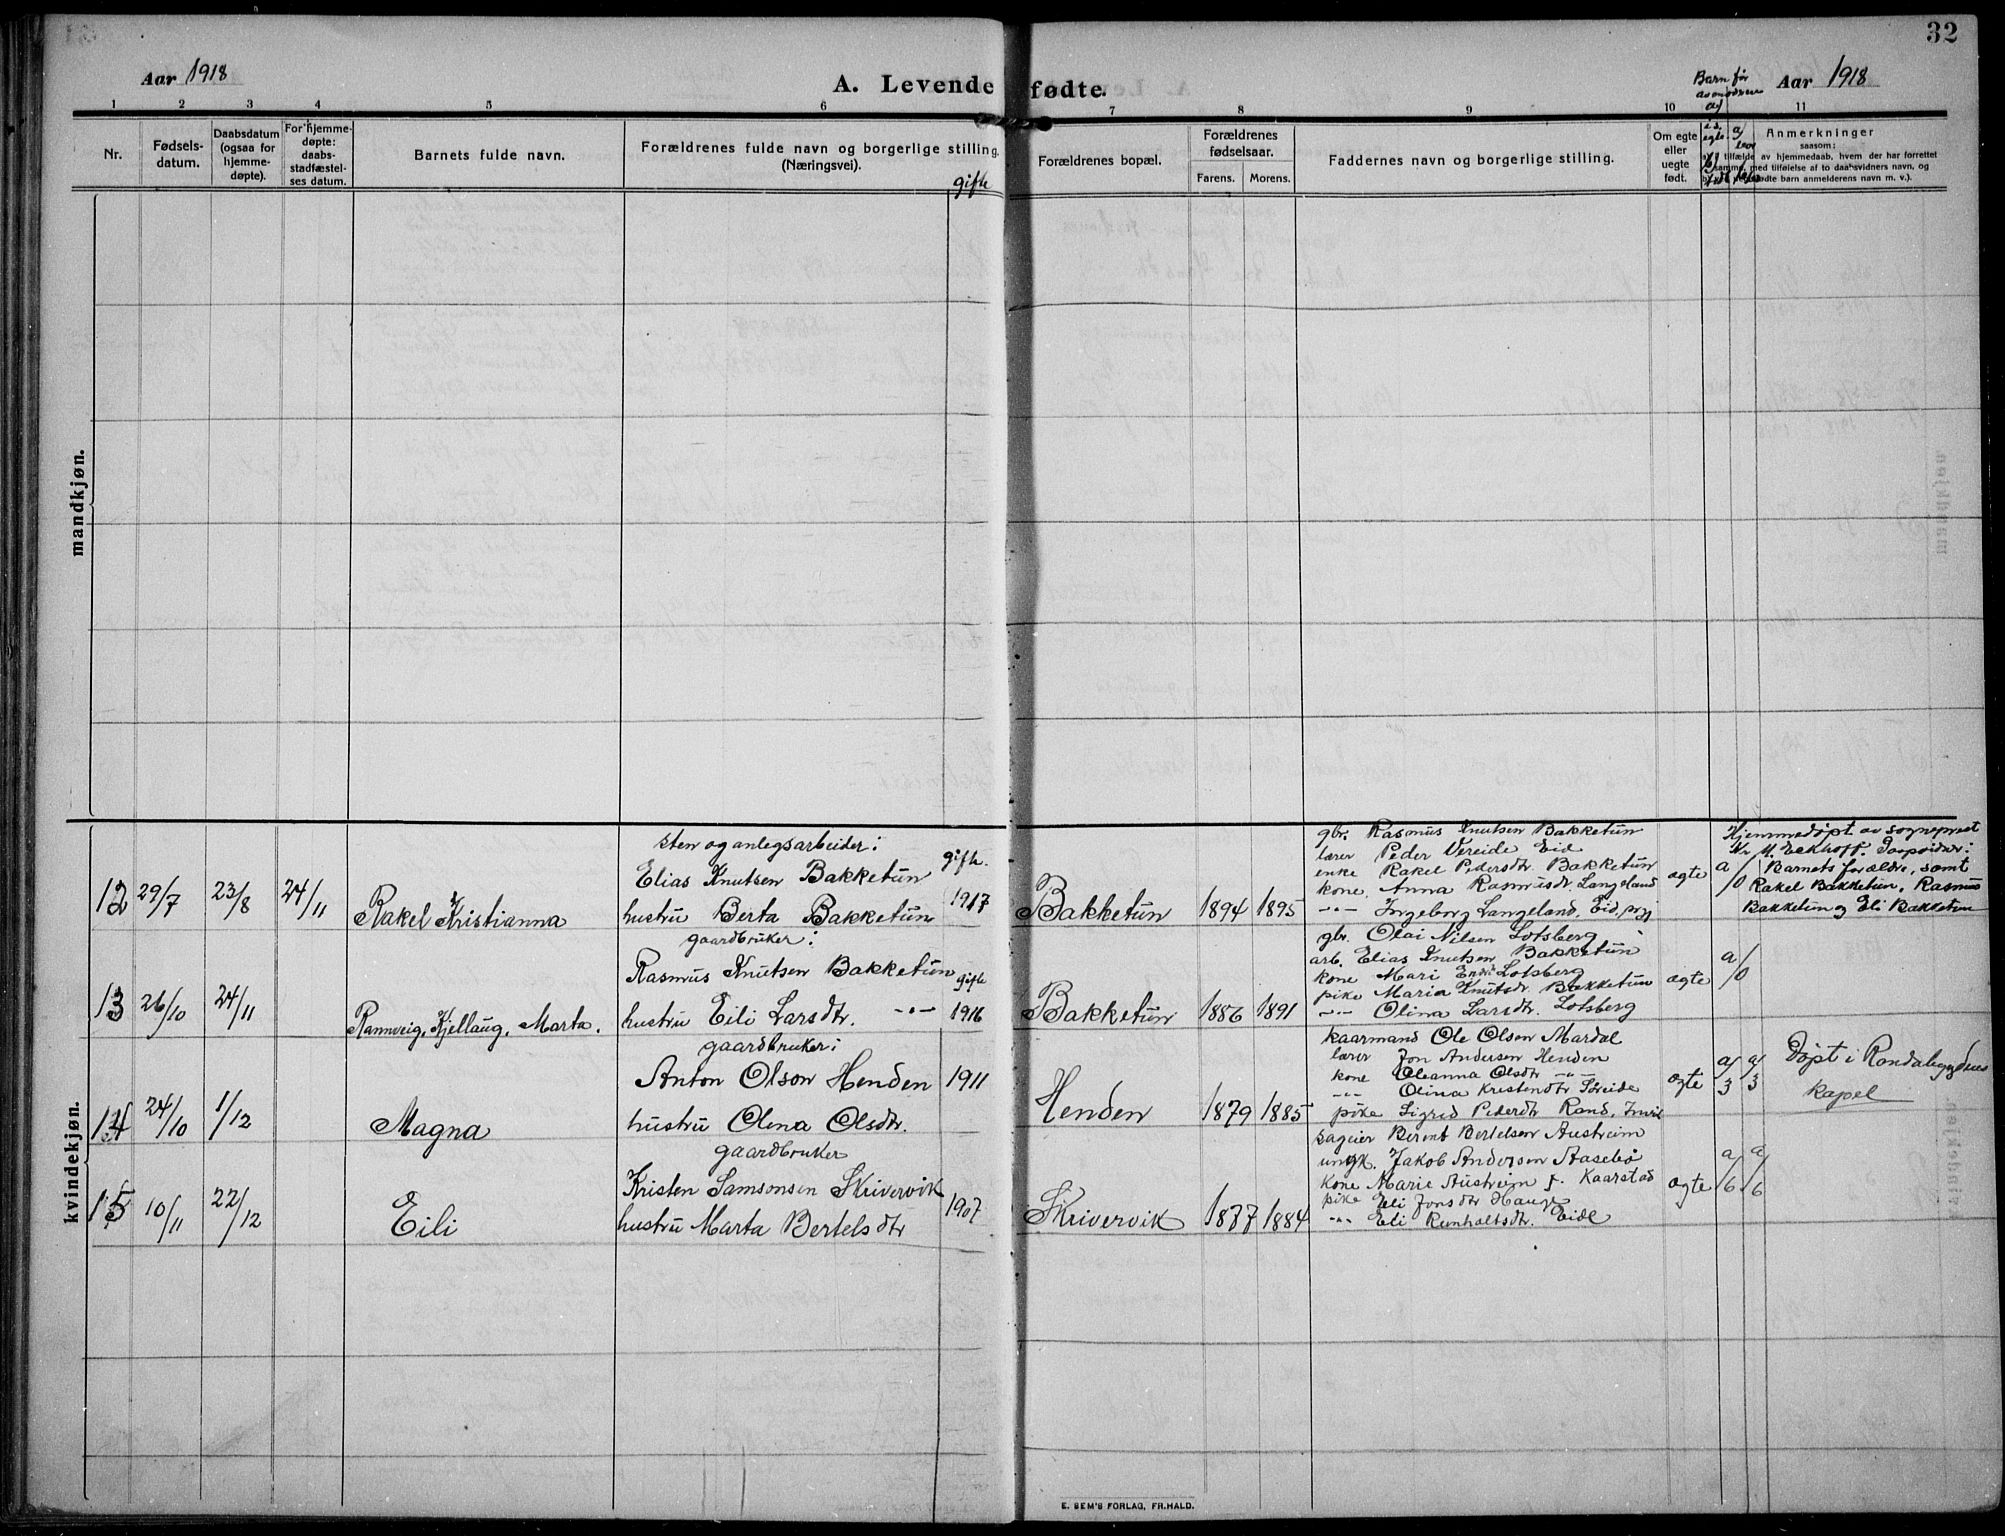 32
Aar 1918
A. Levende fødte.
Barn før
Aar 1918
1 2 3 4 5 6 7 8 9 10 11
Nr.
Fødsels-
datum.
Daabsdatum
(ogsaa for
hjemme-
døpte).
For hjemme-
døpte:
daabs-
stadfæstel-
ses datum.
Barnets fulde navn.
Forældrenes fulde navn og borgerlige stilling.
(Næringsvei).
gifte
Forældrenes bopæl.
Forældrenes
fødselsaar.
Farens. Morens.
Faddernes navn og borgerlige stilling.
Om egte
eller
uegte
født.
Anmerkninger
saasom:
tilfælde av hjemmedaab, hvem der har forrettet
samme, med tilføielse af to daabsvidners navn, og
fødte barn anmelderens navn m. v.).
mandkjøn.
kvindekjøn.
12 29/7 23/8 24/11
Rakel Kristianna
sten og anlegsarbeider:
Elias Knutsen Bakketun
hustru Berta Bakketun
gifte.
1917
Bakketun 1894 1895
gbr. Rasmus Knutsen Bakketun
lærer Peder Vereide Eid
enke Rakel Pedersdtr Bakketun
kone Anna Rasmusdtr Langeland
-"- Ingeborg Langeland, Eid,
egte a/0
Hjemmedøpt av sogneprest
Kr M. Eckhoff.
Barnets forældre, samt
Rakel Bakketun, Rasmus
Bakketun og Eli Bakketun
13 26/10 24/11
Rannveig, Kjellaug, Marta.
gaardbruker:
Rasmus Knutsen Bakketun
hustru Eili Larsdtr. -"-
gifte
1916
Bakketun 1886 1891
gbr. Olai Nilsen Lotsberg
arb. Elias Knutsen Bakketun
kone Mari Lotsberg
pike Maria Knutsdtr Bakketun
-"- Olina Larsdtr. Lotsberg
egte a/0
14 24/10 1/12
Magna
gaardbruker:
Anton Olson Henden
hustru Olena Olsdtr.
1911
Henden 1879 1885
kaarmand Ole Olsen Mardal
lærer Jon Andersen Henden
kone Oleanna Olsdtr -"-
-"- Olina Kristendtr Sreide
pike Sigrid Pedersdtr Rand,
egte a/3 a/3
Døpt i Randabygdens
kapel
15 10/11 22/12
Eili
gaardbruker
Kristen Samsonsen Skrivervik
hustru Marta Bertelsdtr
1907
Skrivervik 1877 1884
sageier Berent Bertelsen Austreim
ungk. Jakob Andersen Aasebø
kone Marie Austreim f. Kaarstad
pike Eli Jonsdtr Hauge
-"- Eli Runholtsdtr. Eide
egte a/6 a/6
E. SEM'S FORLAG, FR.HALD.